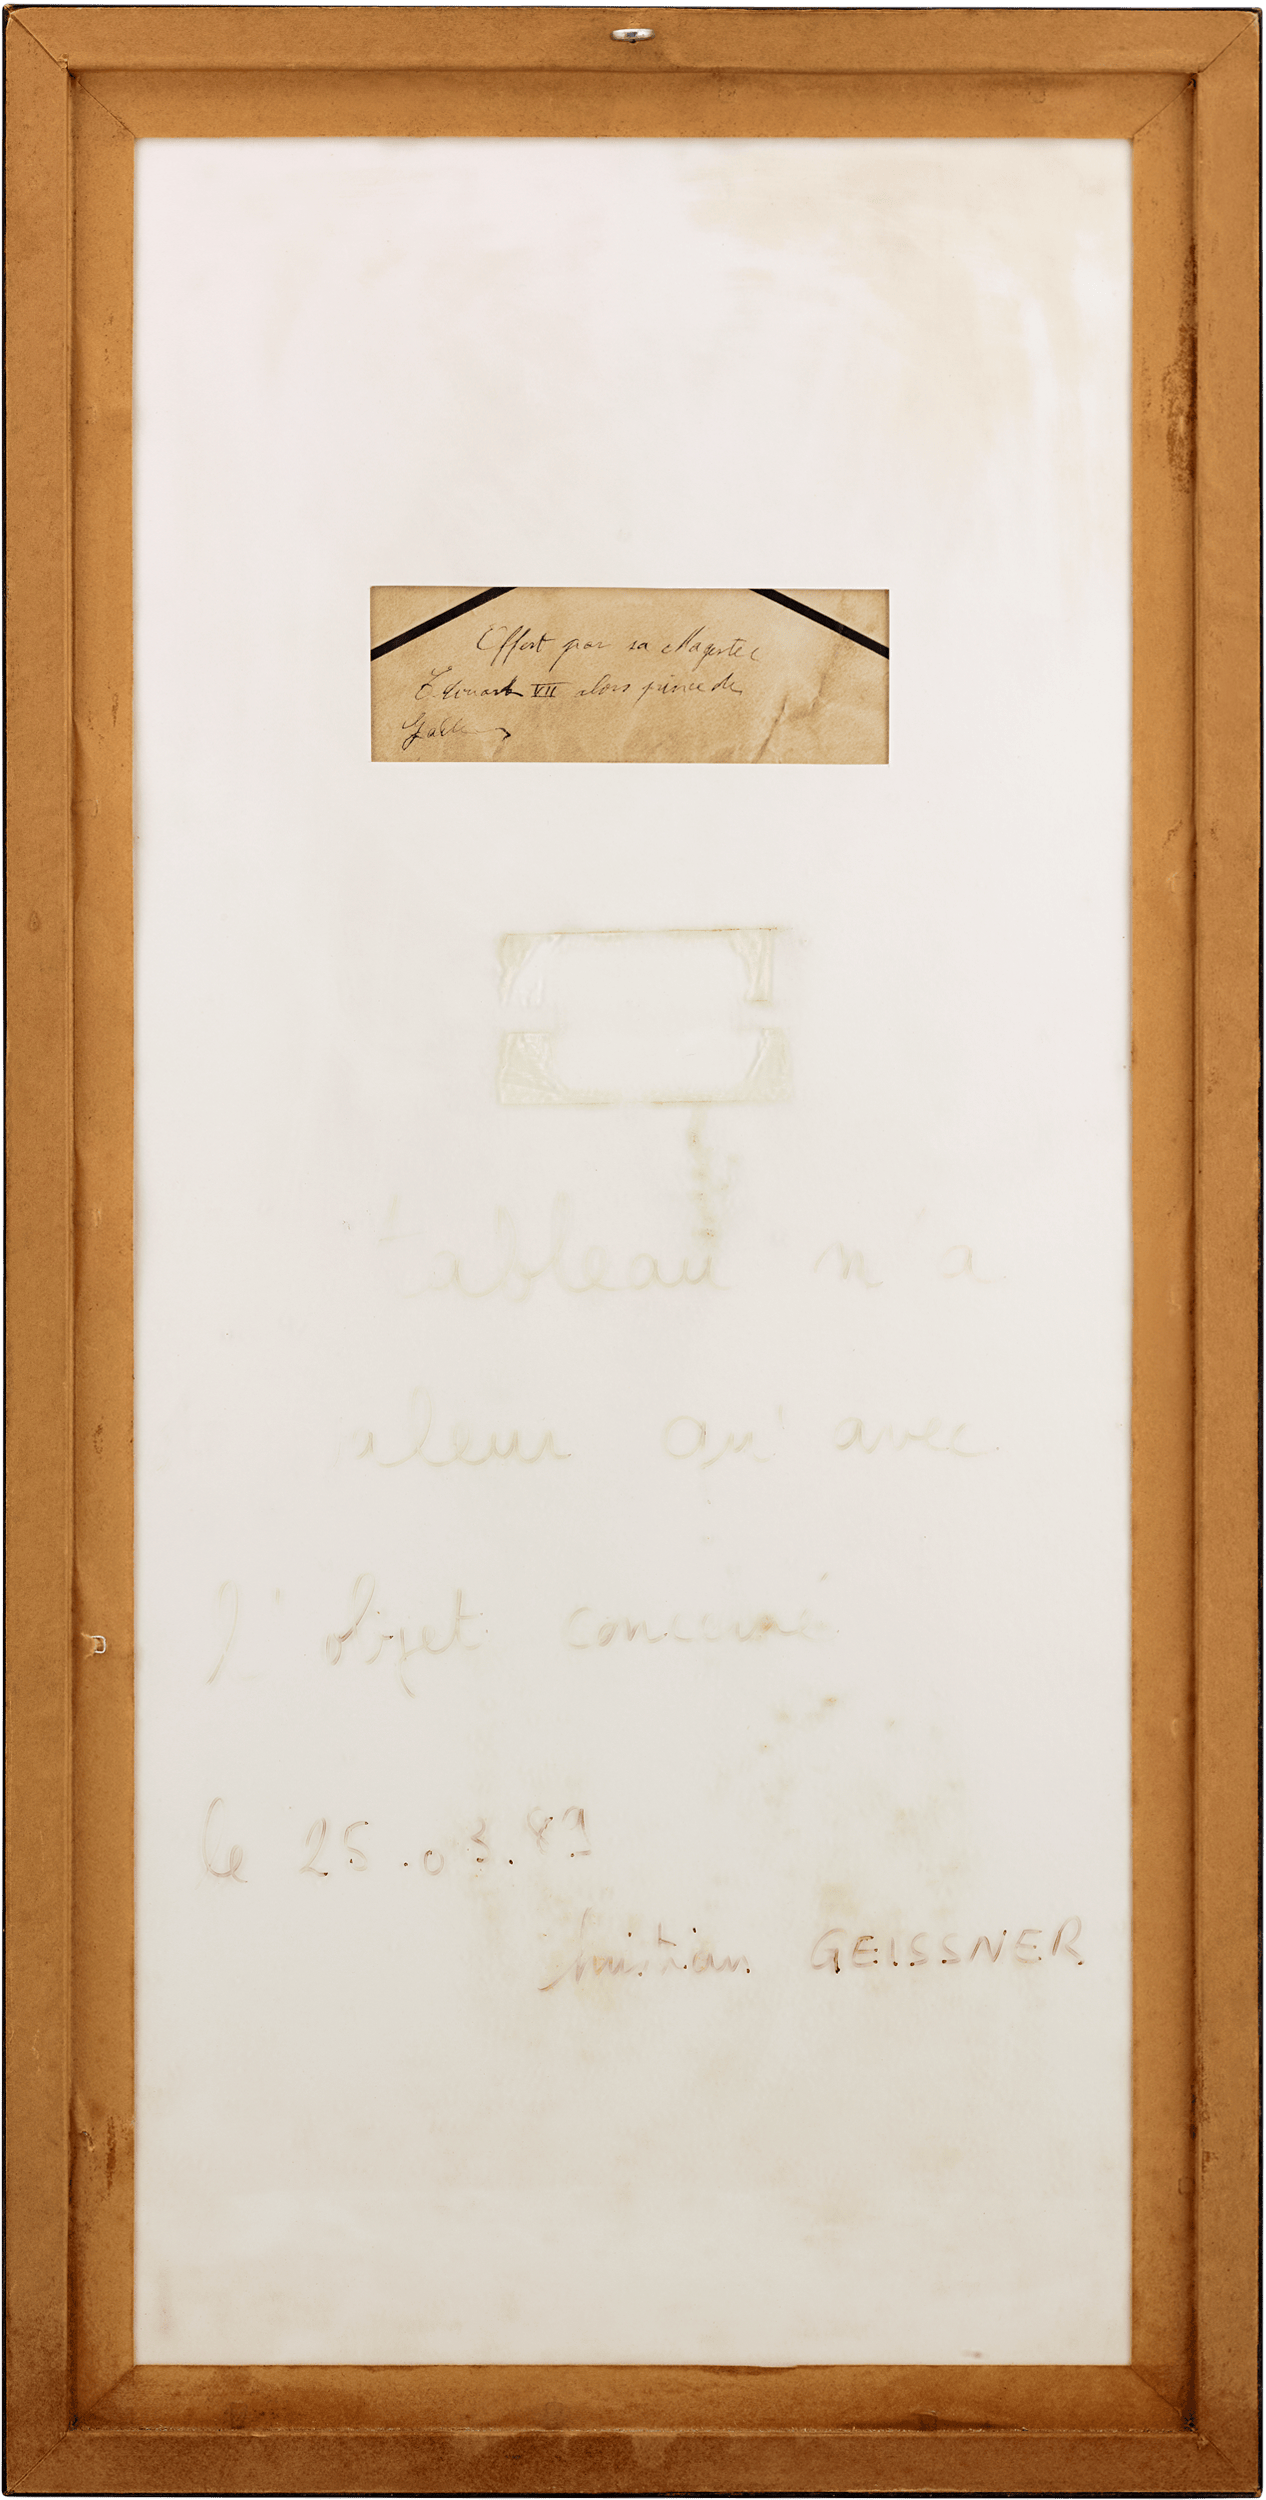 Offert par sa Magestee
Edouard VII alors prince de
Galle
tableau n'a
aleur qu'avec
l'objet concerné
le 25.03.89
Christian GEISSNER